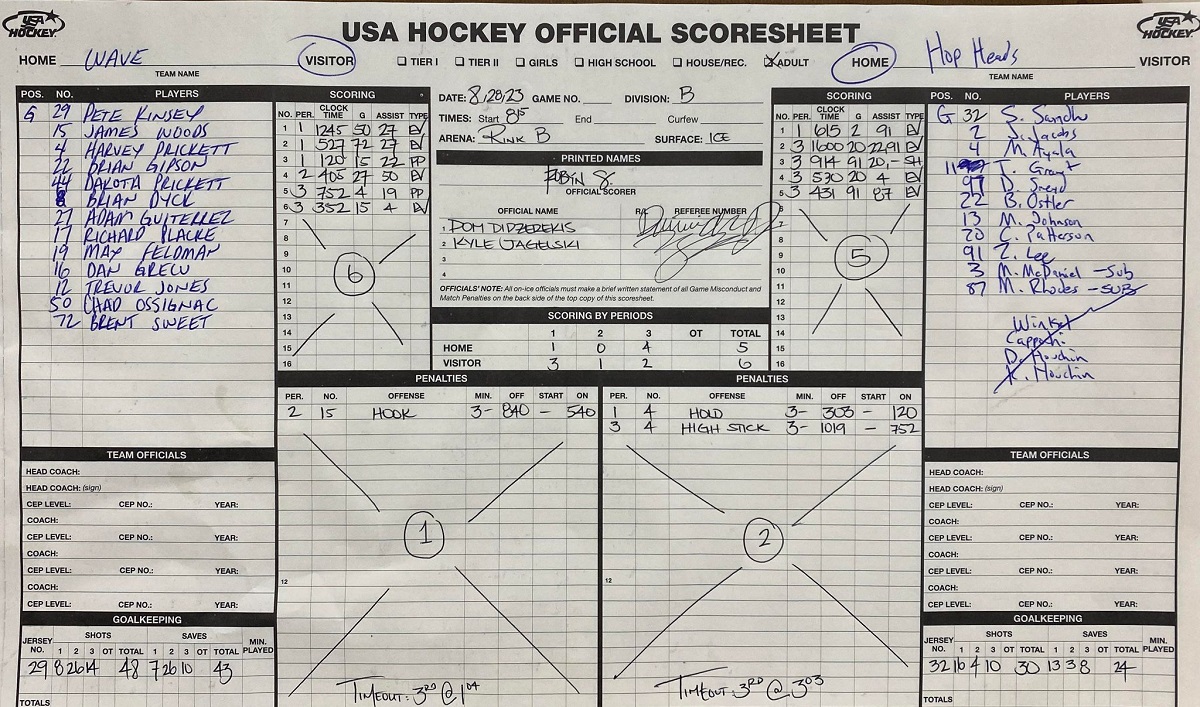 USA HOCKEY OFFICIAL SCORESHEET
USA HOCKEY
USA HOCKEY
HOME WAVE VISITOR
TEAM NAME
☐ TIER I ☐ TIER II ☐ GIRLS ☐ HIGH SCHOOL ☐ HOUSE/REC. ☒ ADULT
HOME Hop Heads VISITOR
TEAM NAME
POS. NO. PLAYERS
G 29 PETE KINSEY
15 JAMES WOODS
4 HARVEY PRICKETT
22 BRIAN GIPSON
44 DAKOTA PRICKETT
8 BRIAN DYCK
27 ADAM GUITERREZ
17 RICHARD PLACKE
19 MAX FELDMAN
16 DAN GRECU
12 TREVOR JONES
50 CHAD OSSIGNAC
72 BRENT SWEET
SCORING
NO. PER. CLOCK TIME G ASSIST TYPE
1 1 1245 50 27 EV
2 1 527 72 27 EV
3 1 120 15 22 PP
4 2 405 27 50 EV
5 3 752 4 19 PP
6 3 352 15 4 EV
7
8
9
10
11
12
13
14
15
16
6
DATE: 8/28/23 GAME NO. DIVISION: B
TIMES: Start 815 End Curfew
ARENA: RINK B SURFACE: ICE
PRINTED NAMES
ROBIN S.
OFFICIAL SCORER
OFFICIAL NAME REFEREE NUMBER
1 DOM DIDZEREKIS
2 KYLE JAGELSKI
3
4
OFFICIALS' NOTE: All on-ice officials must make a brief written statement of all Game Misconduct and
Match Penalties on the back side of the top copy of this scoresheet.
SCORING BY PERIODS
1 2 3 OT TOTAL
HOME 1 0 4 5
VISITOR 3 1 2 6
SCORING
NO. PER. CLOCK TIME G ASSIST TYPE
1 1 615 2 91 EV
2 3 1600 20 22 91 EV
3 3 914 91 20, - SH
4 3 530 20 4 EV
5 3 431 91 87 EV
6
7
8
9
10
11
12
13
14
15
16
5
POS. NO. PLAYERS
G 32 S. Sandhu
2 J. Jacobs
4 M. Ayala
11 T. Grant
97 D. Snead
22 B. Ostler
13 M. Johnson
20 C. Patterson
91 Z. Lee
3 M. McDaniel - Sub
87 M. Rhodes - SUB
D. Houchin
K. Houchin
PENALTIES
PER. NO. OFFENSE MIN. OFF START ON
2 15 HOOK 3- 840 - 540
12
1
TIMEOUT: 3RD @ 104
PENALTIES
PER. NO. OFFENSE MIN. OFF START ON
1 4 HOLD 3- 303 - 120
3 4 HIGH STICK 3- 1019 - 752
12
2
TIMEOUT: 3RD @ 303
TEAM OFFICIALS
HEAD COACH:
HEAD COACH: (sign)
CEP LEVEL: CEP NO.: YEAR:
COACH:
CEP LEVEL: CEP NO.: YEAR:
COACH:
CEP LEVEL: CEP NO.: YEAR:
COACH:
CEP LEVEL: CEP NO.: YEAR:
GOALKEEPING
JERSEY NO. SHOTS SAVES MIN. PLAYED
1 2 3 OT TOTAL 1 2 3 OT TOTAL
29 8 26 14 48 7 26 10 43
TOTALS
TEAM OFFICIALS
HEAD COACH:
HEAD COACH: (sign)
CEP LEVEL: CEP NO.: YEAR:
COACH:
CEP LEVEL: CEP NO.: YEAR:
COACH:
CEP LEVEL: CEP NO.: YEAR:
COACH:
CEP LEVEL: CEP NO.: YEAR:
GOALKEEPING
JERSEY NO. SHOTS SAVES MIN. PLAYED
1 2 3 OT TOTAL 1 2 3 OT TOTAL
32 16 4 10 30 13 3 8 24
TOTALS